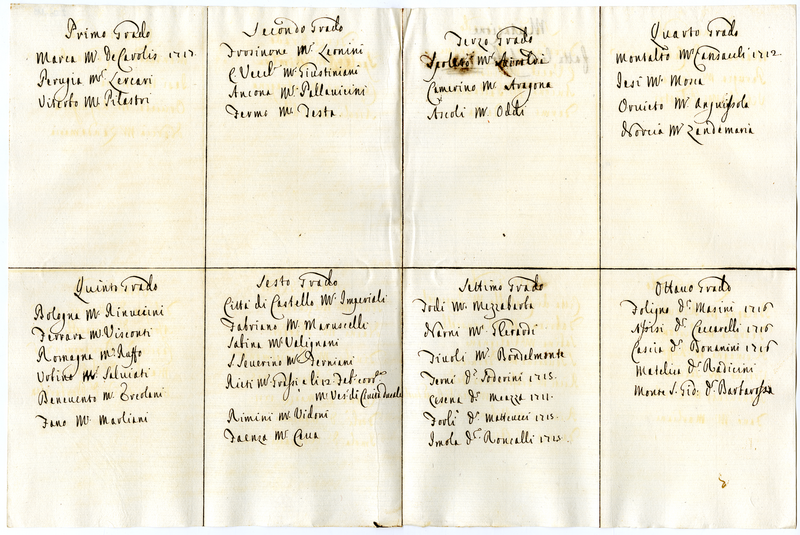 Primo Grado
Marca Mr. De Carolis 1717.
Perugia Mr. Lercari
Viterbo Mr. Pilastri
Secondo Grado
Frosinone Mr. Leonini
C. Vecch. Mr. Giustiniani
Ancona Mr. Pallavicini
Fermo Mr. Testa.
Terzo Grado
Spoleti Mr.
Camerino Mr. Aragona
Ascoli Mr. Oddi
Quarto Grado
Montalto Mr. Cansacchi 1712.
Jesi Mr. Mosca
Orvieto Mr. Anguissola
Norcia Mr. Landemaria
Quinto Grado
Bologna Mr. Rinuccini
Ferrara Mr. Visconti
Romagna Mr. Raffo
Urbino Mr. Salviati
Benevento Mr. Ercolani
Fano Mr. Marliani
Sesto Grado
Città di Castello Mr. Imperiali
Fabriano Mr. Maruscelli
Sabina Mr. Valignani
S. Severino Mr. Perniani
Rieti Mr. Grassi e li 12
Mr. Ves. di Civita
Rimini Mr. Vidoni
Faenza Mr. Cava
Settimo Grado
Todi Mr. Mezzabarba
Narni Mr. Gherardi
Tivoli Mr. Rondelmonte
Terni Dr. Soderini 1715.
Cesena Dr. Meazza 1711.
Forlì Dr. Matteucci 1715.
Imola Dr. Roncalli 1715.
Ottavo Grado
Foligno Dr. Masini 1716
Assisi Dr. Ceccarelli 1716
Cascia Dr. Bonamini 1716
Matelica Dr. Radicini
Monte S. Gio: Dr. Barbarossa